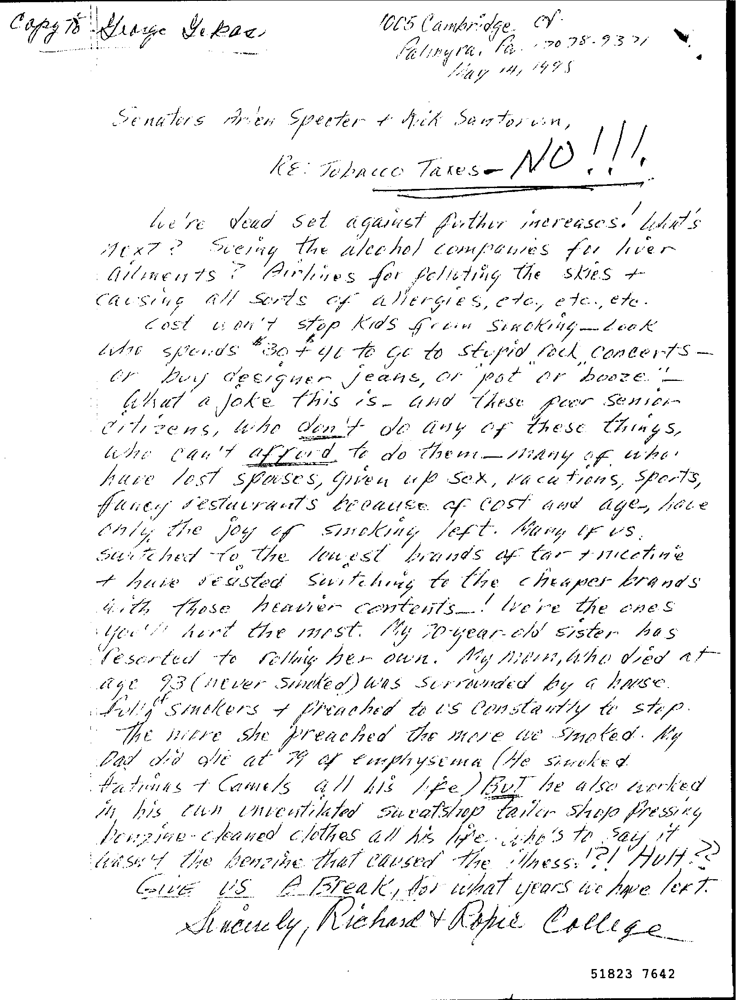 Copy to George Gekas
1005 Cambridge Ct.
Palmyra, Pa. 17078-9371
May 14, 1998
Senators Arlen Specter + Rick Santorum,
RE: Tobacco Taxes - NO!!!
We're dead set against further increases! What's
next? Sueing the alcohol companies for liver
ailments? Airlines for polluting the skies +
causing all sorts of allergies, etc., etc., etc.
Cost won't stop kids from smoking - Look
who spends $30 + $40 to go to stupid rock concerts -
or buy designer jeans, or "pot" or "booze" -
What a joke this is - and these poor senior
citizens, who don't do any of these things,
who can't afford to do them - many of who
have lost spouses, given up sex, vacations, sports,
fancy restaurants because of cost and age, have
only the joy of smoking left. Many of us
switched to the lowest brands of tar + nicotine
+ have resisted switching to the cheaper brands
with those heavier contents - ! We're the ones
you'll hurt the most. My 70-year-old sister has
resorted to rolling her own. My mom, who died at
age 93 (never smoked) was surrounded by a house
full of smokers + preached to us constantly to stop.
The more she preached the more we smoked. My
Dad did die at 79 of emphysema (He smoked
Fatimas + Camels all his life) BUT he also worked
in his own unventilated sweatshop tailor shop pressing
benzine-cleaned clothes all his life. Who's to say it
wasn't the benzine that caused the illness!?! HUH??
GIVE US A Break, for what years we have left.
Sincerely, Richard + College
51823 7642